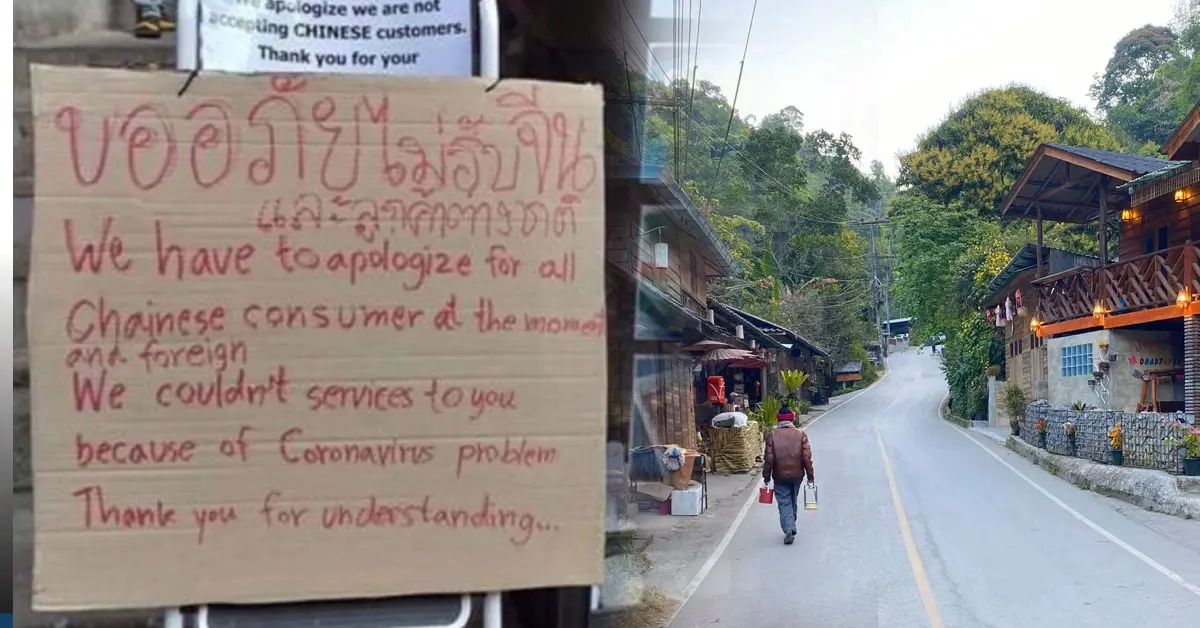 We apologize we are not
accepting CHINESE customers.
Thank you for your
ขออภัยไม่รับจีน
และลูกค้าต่างชาติ
We have to apologize for all
Chainese consumer at the moment
and foreign
We couldn't services to you
because of Coronavirus problem
Thank you for understanding...